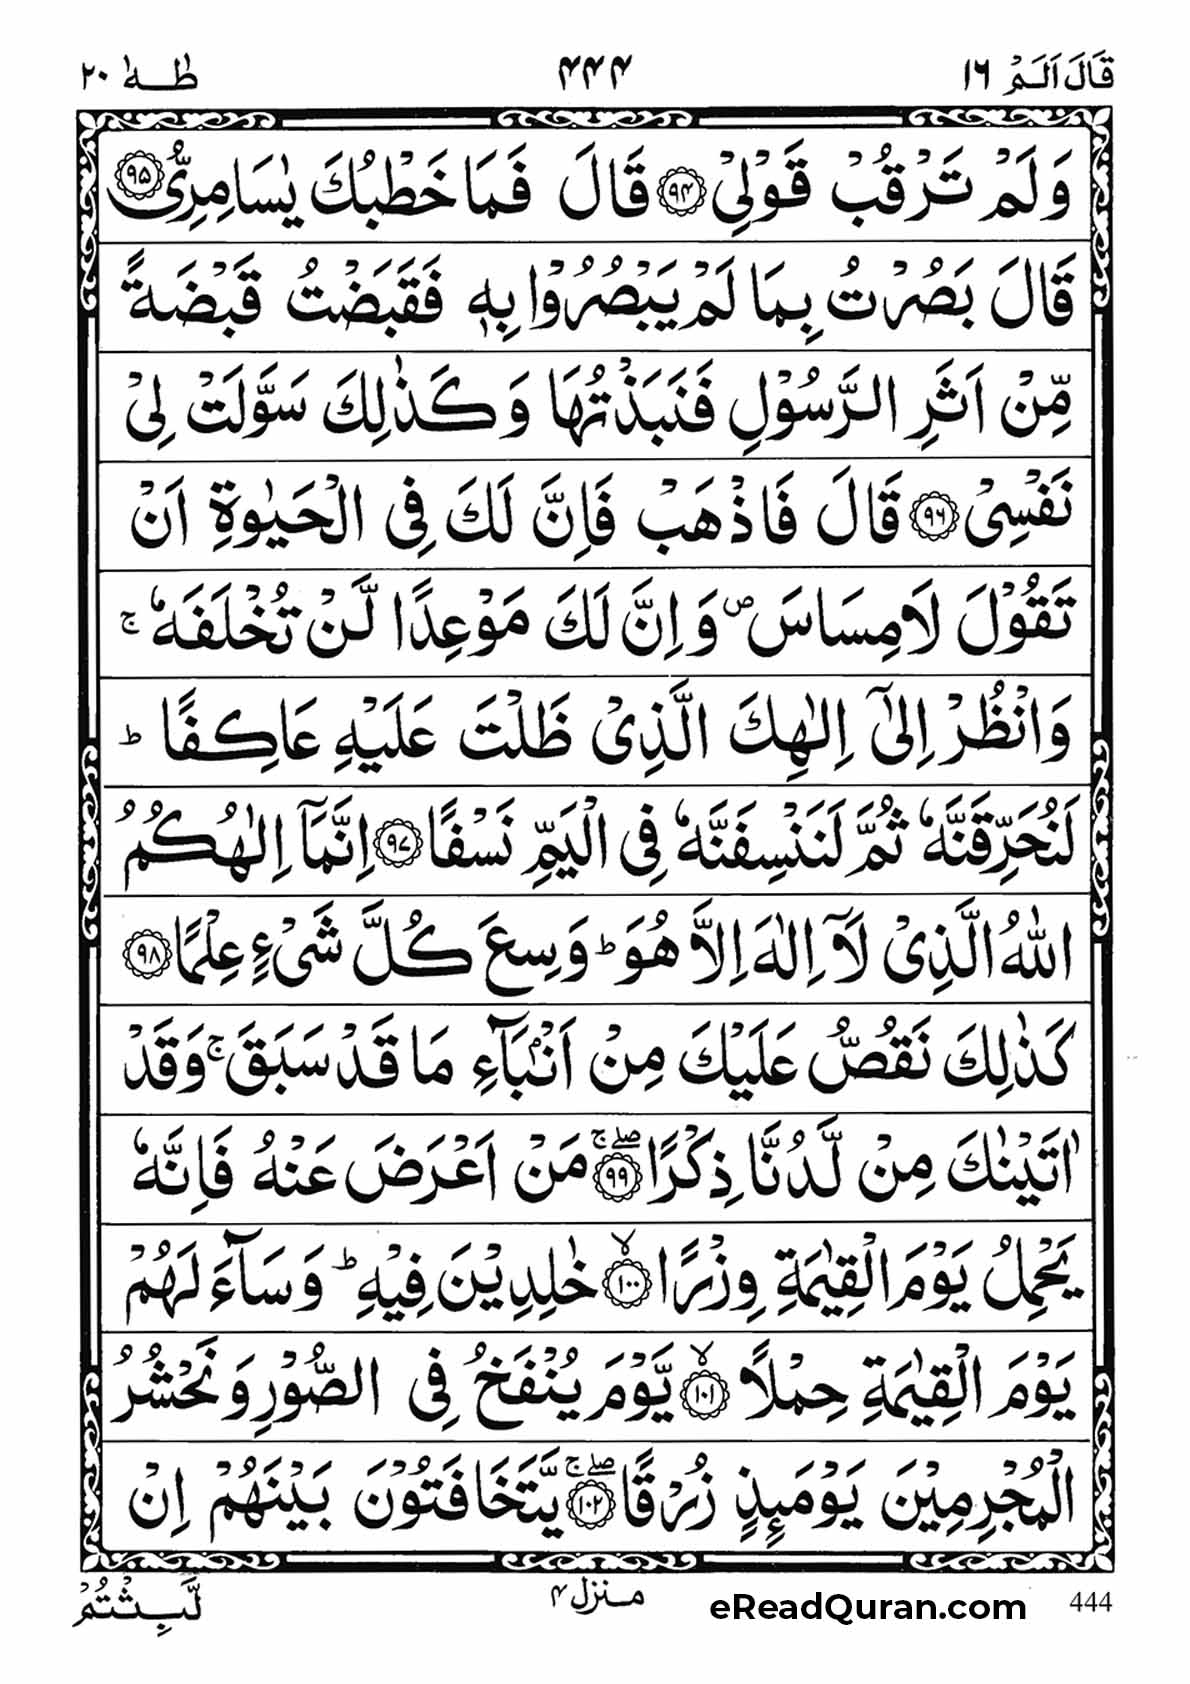 قَالَ اَلَمْ ١٦
۴۴۴
طٰهٰ ٢٠
وَلَمْ تَرْقُبْ قَوْلِیْ ﴿۹۴﴾ قَالَ فَمَا خَطْبُكَ یٰسَامِرِیُّ ﴿۹۵﴾
قَالَ بَصُرْتُ بِمَا لَمْ یَبْصُرُوْا بِهٖ فَقَبَضْتُ قَبْضَةً
مِّنْ اَثَرِ الرَّسُوْلِ فَنَبَذْتُهَا وَكَذٰلِكَ سَوَّلَتْ لِیْ
نَفْسِیْ ﴿۹۶﴾ قَالَ فَاذْهَبْ فَاِنَّ لَكَ فِی الْحَیٰوةِ اَنْ
تَقُوْلَ لَا مِسَاسَ ۪ وَاِنَّ لَكَ مَوْعِدًا لَّنْ تُخْلَفَهٗ ۚ
وَانْظُرْ اِلٰۤی اِلٰهِكَ الَّذِیْ ظَلْتَ عَلَیْهِ عَاكِفًا ؕ
لَنُحَرِّقَنَّهٗ ثُمَّ لَنَنْسِفَنَّهٗ فِی الْیَمِّ نَسْفًا ﴿۹۷﴾ اِنَّمَاۤ اِلٰهُكُمُ
اللّٰهُ الَّذِیْ لَاۤ اِلٰهَ اِلَّا هُوَ ؕ وَسِعَ كُلَّ شَیْءٍ عِلْمًا ﴿۹۸﴾
كَذٰلِكَ نَقُصُّ عَلَیْكَ مِنْ اَنْۢبَآءِ مَا قَدْ سَبَقَ ۚ وَقَدْ
اٰتَیْنٰكَ مِنْ لَّدُنَّا ذِكْرًا ﴿۹۹﴾ۖۚ مَنْ اَعْرَضَ عَنْهُ فَاِنَّهٗ
یَحْمِلُ یَوْمَ الْقِیٰمَةِ وِزْرًا ﴿۱۰۰﴾ۙ خٰلِدِیْنَ فِیْهِ ؕ وَسَآءَ لَهُمْ
یَوْمَ الْقِیٰمَةِ حِمْلًا ﴿۱۰۱﴾ۙ یَّوْمَ یُنْفَخُ فِی الصُّوْرِ وَنَحْشُرُ
الْمُجْرِمِیْنَ یَوْمَىِٕذٍ زُرْقًا ﴿۱۰۲﴾ۖۚ یَّتَخَافَتُوْنَ بَیْنَهُمْ اِنْ
444
eReadQuran.com
منزل ۴
لَّبِثْتُمْ